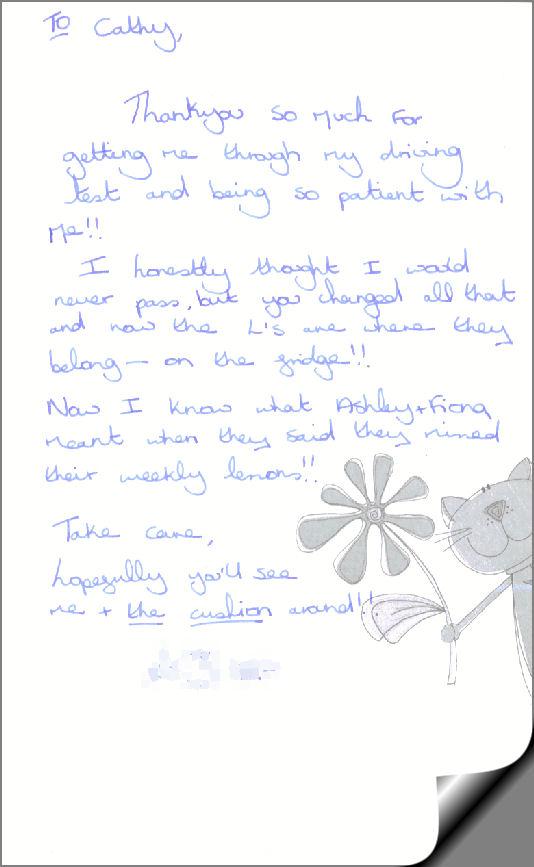 TO Cathy,
Thankyou so much for
getting me through my driving
test and being so patient with
me!!
I honestly thought I would
never pass, but you changed all that
and now the L's are where they
belong - on the fridge!!
Now I know what Ashley+Fiona
meant when they said they missed
their weekly lessons!!
Take care,
hopefully you'll see
me + the cushion around!!